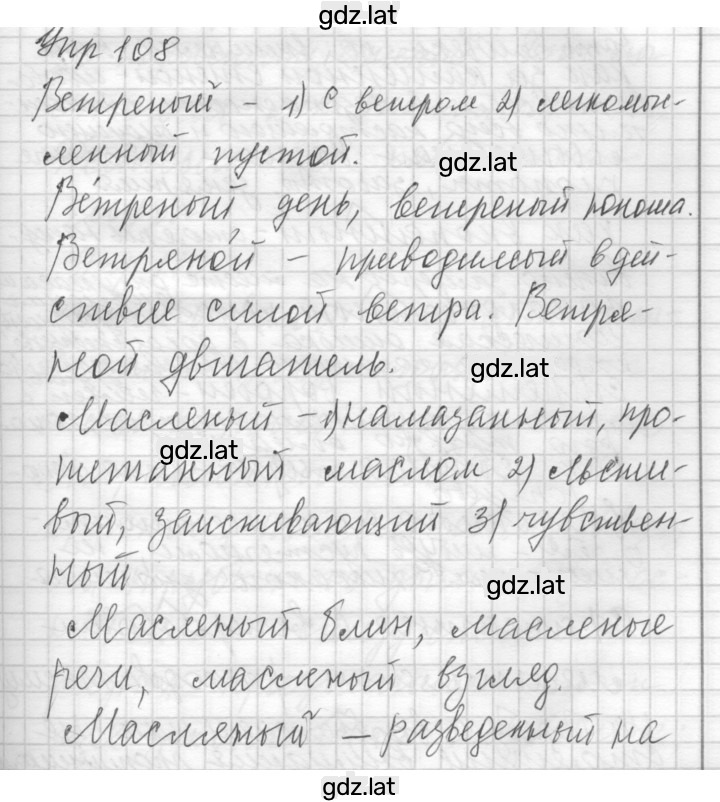 gdz.lat
Упр 108
Ветреный - 1) С ветром 2) легкомы-
ленный пустой.
gdz.lat
Ве́треный день, ветреный юноша.
Ветряно́й - приводимый в дей-
ствие силой ветра. Ветря-
ной двигатель.
gdz.lat
Масленый - 1) намазанный, про-
gdz.lat
питанный маслом 2) льсти-
вый, заискивающий 3) чувствен-
ный
gdz.lat
Масленый блин, масленые
речи, масленый взгляд.
Масляный - разведенный на
gdz.lat